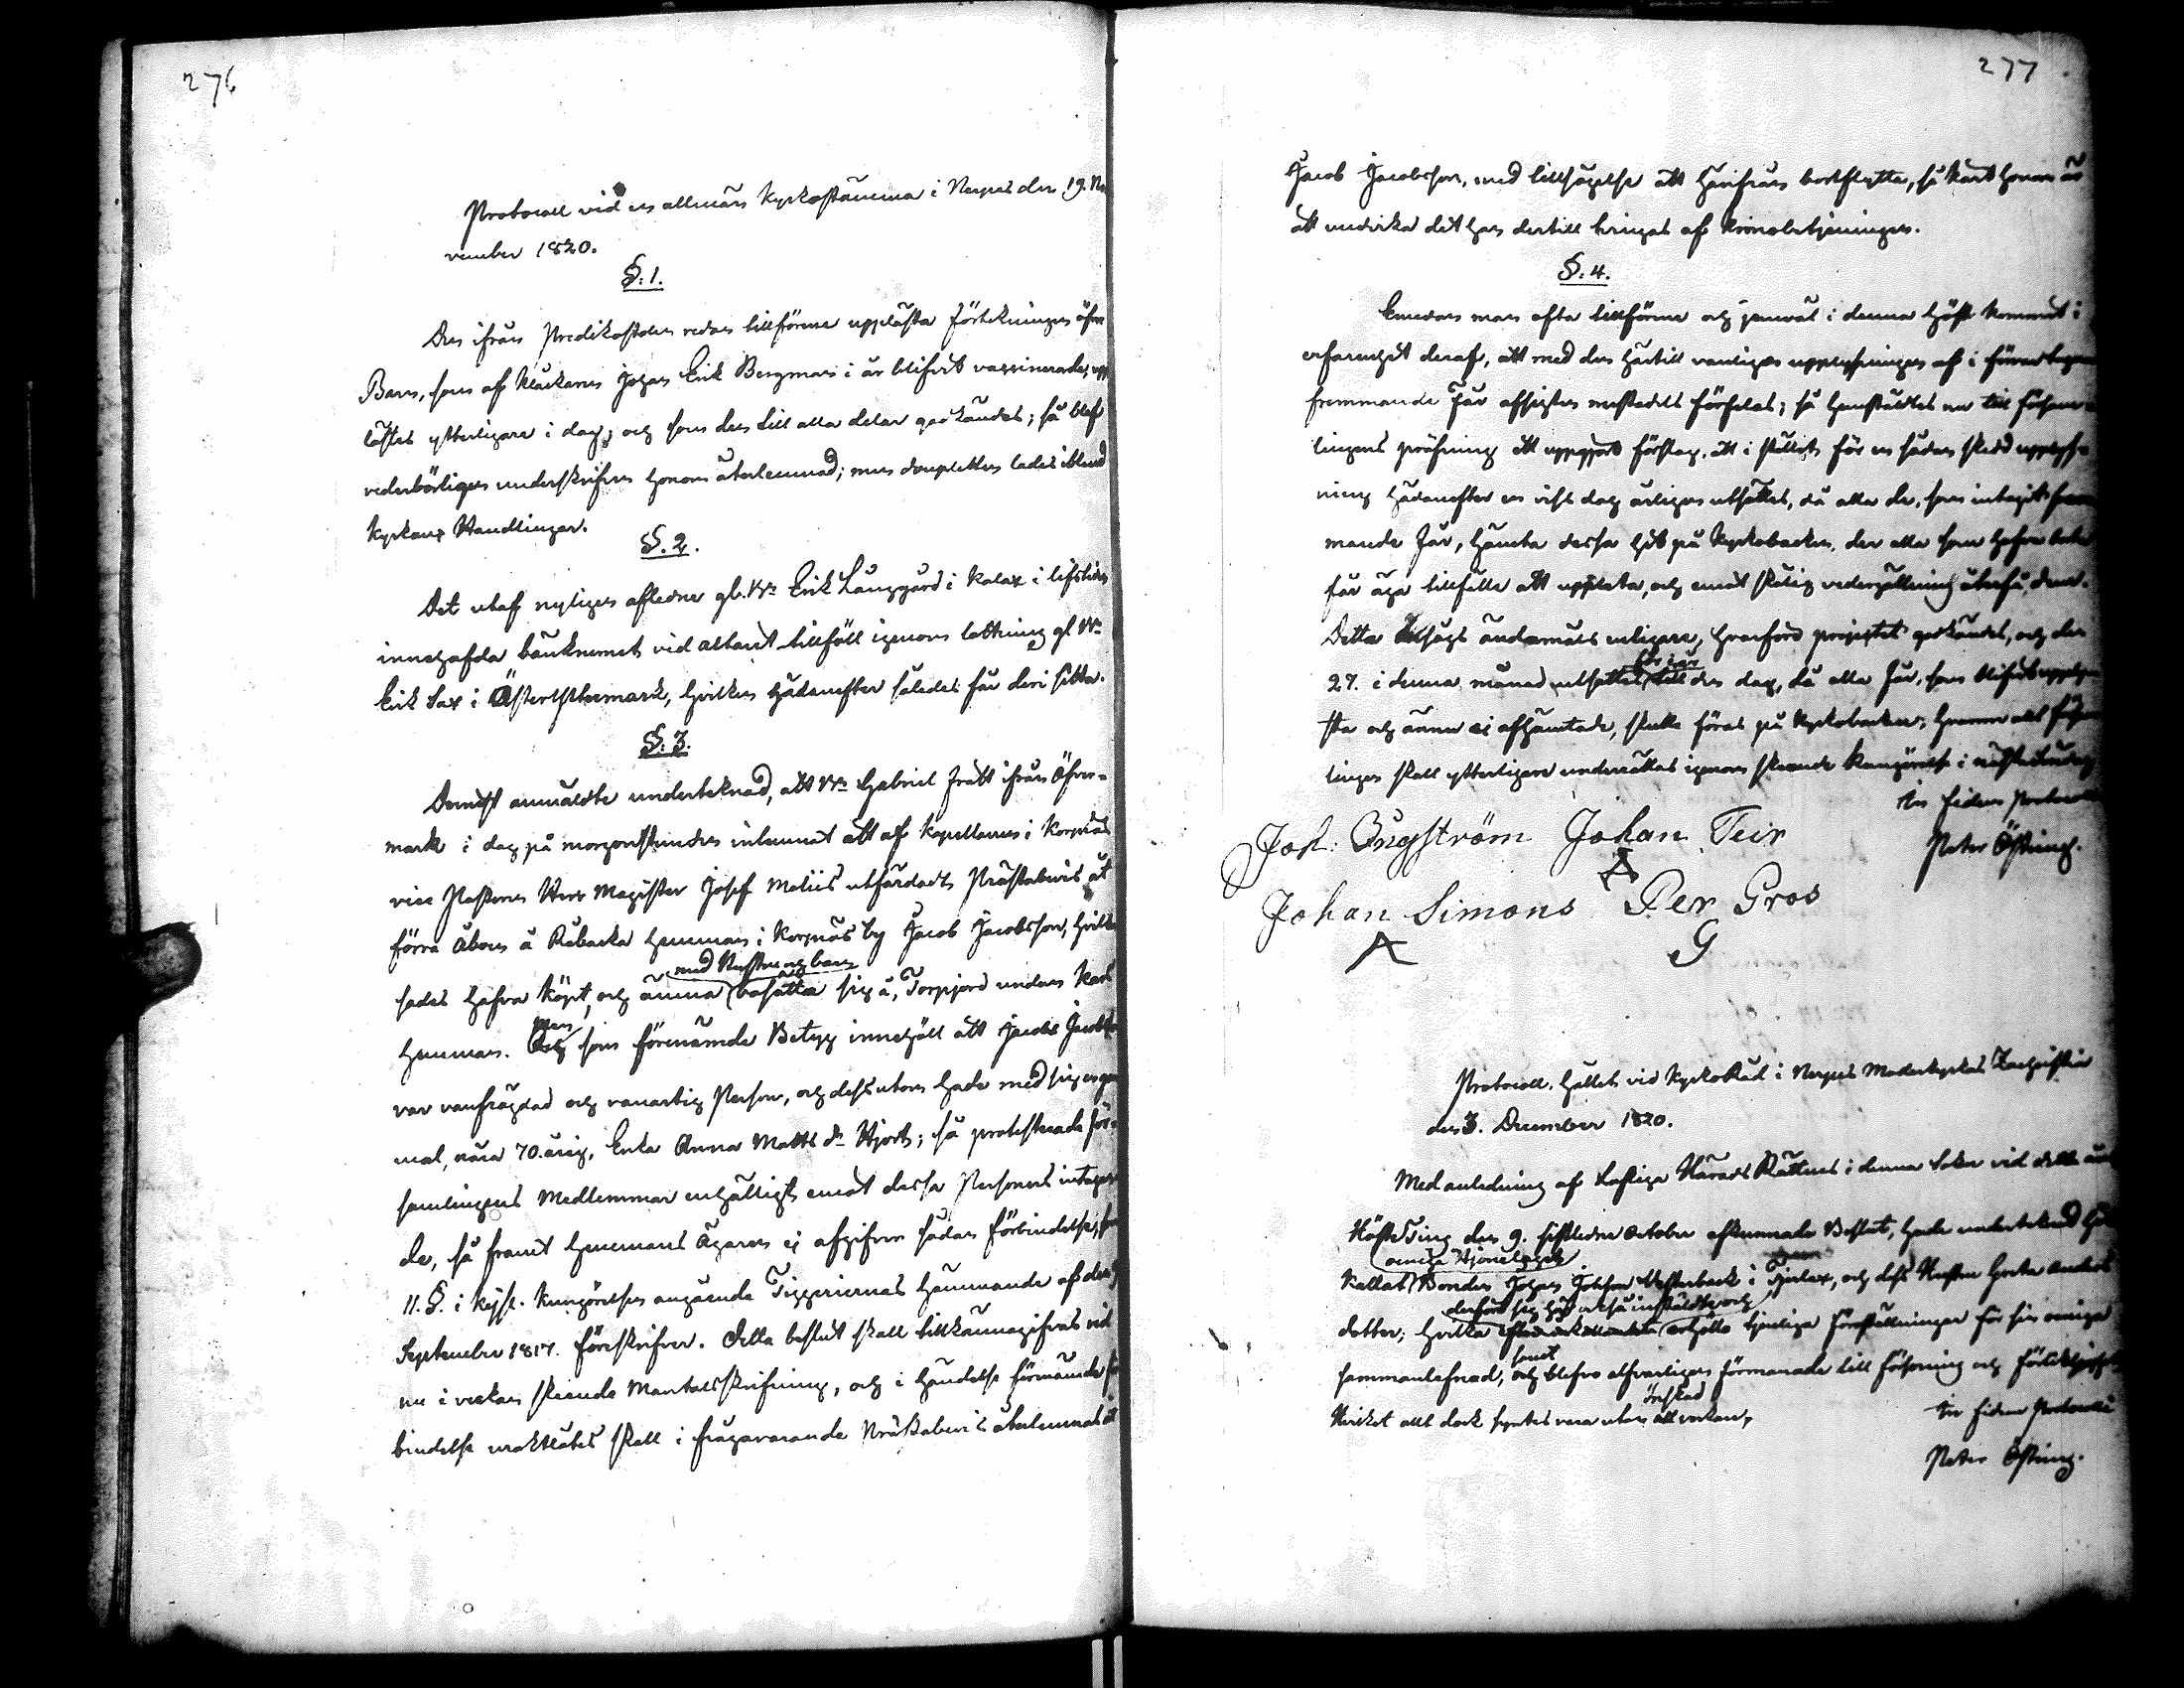 276
Protocoll vid en allmän Kyrkostämma i Nerpes den 19. No
vember 1820.
§. 1.
Den ifrån Predikostolen redan tillförene upplästa Förtekningen öfver
Barn, som af Klåckaren Johan Erik Bergman i år blifvit vaccinerade, upp
lästes ytterligare i dag, och som den till alla delar godkändes; så blef
vederbörligen underskrifven honom återlemnad; men doupletten lades ibland
Kyrkans Handlingar.
§. 2.
Det utaf nyligen afledne gl. Bn Erik Långgård i Kalax i lifstiden
innehafda bänkrumet vid altaret tillföll igenom lottning gl Bn
Erik Sax i Östertjhermark, hvilken hädanefter således får deri sitta.
§. 3.
Dernäst anmäldte undertecknad, att Bn Gabriel Frått ifrån Öfver-
mark i dag på morgonstunden inlemnat ett af Kapellanen i Korsnäs
vice Pastoren Herr Magister Josef Meliis utfärdadt Prästabevis åt
förra Åboen å Råbacka Hemman i Korsnäs by Jacob Jacobsson, hvilken
med Hustru och barn
sades hafva köpt, och ämna bosätta sig å, Torpjord under Karls
Hemman. Men som förenämde Betyg innehöll att Jacob Jacobsson
var vanfrägdad och vanartig Person, och dessutom hade med sig en gam
mal, nära 70.årig, Enka Anna Matts dr Hjort; så protesterade för-
samlingens Medlemmar enhälligt emot dessa Personers intagan
de, så framt Hemmans Ägaren ej afgifver sådan förbindelse, som
11. §. i Kejs. Kungörelsen angående Tiggeriernas hämmande af den
September 1817. föreskrifver. Detta beslut skall tillkännagifvas vid
nu i veckan skeende Mantalsskrifning, och i händelse förenämde för
bindelse uraktlåtes skall i frågavarande Prästabevis återlemnas åt
277
Jacob Jacobsson, med tillsägelse att härifrån bortflytta, så kärt honom är
att undvika det han dertill tvingas af Kronobetjeningen.
§. 4.
Emedan man ofta tillförene och jemväl i denna höst kommit i
erfarenhet deraf, att med den härtill vanligen upplysningen af i
fremmande Får afsigten mestadels förfelas; så hemställdes nu till Försam-
lingens pröfning ett uppgjort förslag, att i stället för en sådan skedd upplys-
ning hädanefter en viss dag årligen utsättes, då alla de, som intagit frem
mande Får, hämta dessa hit på Kyrkobacken, der alla som hafva
får äga tillfälle att uppleta, och emot skälig vedergällning återfå, dem.
Detta ansågs ändamåls enligare, hvarföre projectet godkändes, och den
för i år
27. i denna månad utsattes till den dag, då alla Får, som blifvit upplys
sta och ännu ej afhämtade, skulle föras på Kyrkobacken; hvarom all Försam
lingen skall ytterligare underrättas igenom skeende Kungörelse i
In fidem Protocolli
Joh: Engström Johan Teir
Peter Östring.
Johan Simons Per Gros
A G
Protocoll, hållet vid Kyrko Råd i Nerpes Moderkyrkas Zachristia
den 3. December 1820.
Med anledning af Loflige Härads Rättens i denna Socken vid detta års
Höste Ting den 9. sistledne October afkunnade Beslut, hade undertecknad hit
oeniga Hjonelaget
kallat Bonden Johan Johansson Westerback i Tjerlax, och dess Hustru Greta Anders
derföre sig här också inställde och
dotter; hvilka erhöllo tjenliga föreställningar för sin oeniga
samt
sammanlefnad, och blefvo alfvarligen förmanade till försoning och förlikligh
önskad
Hvilket allt dock syntes vara utan all verkan,
In fidem Protocolli
Peter Östring.